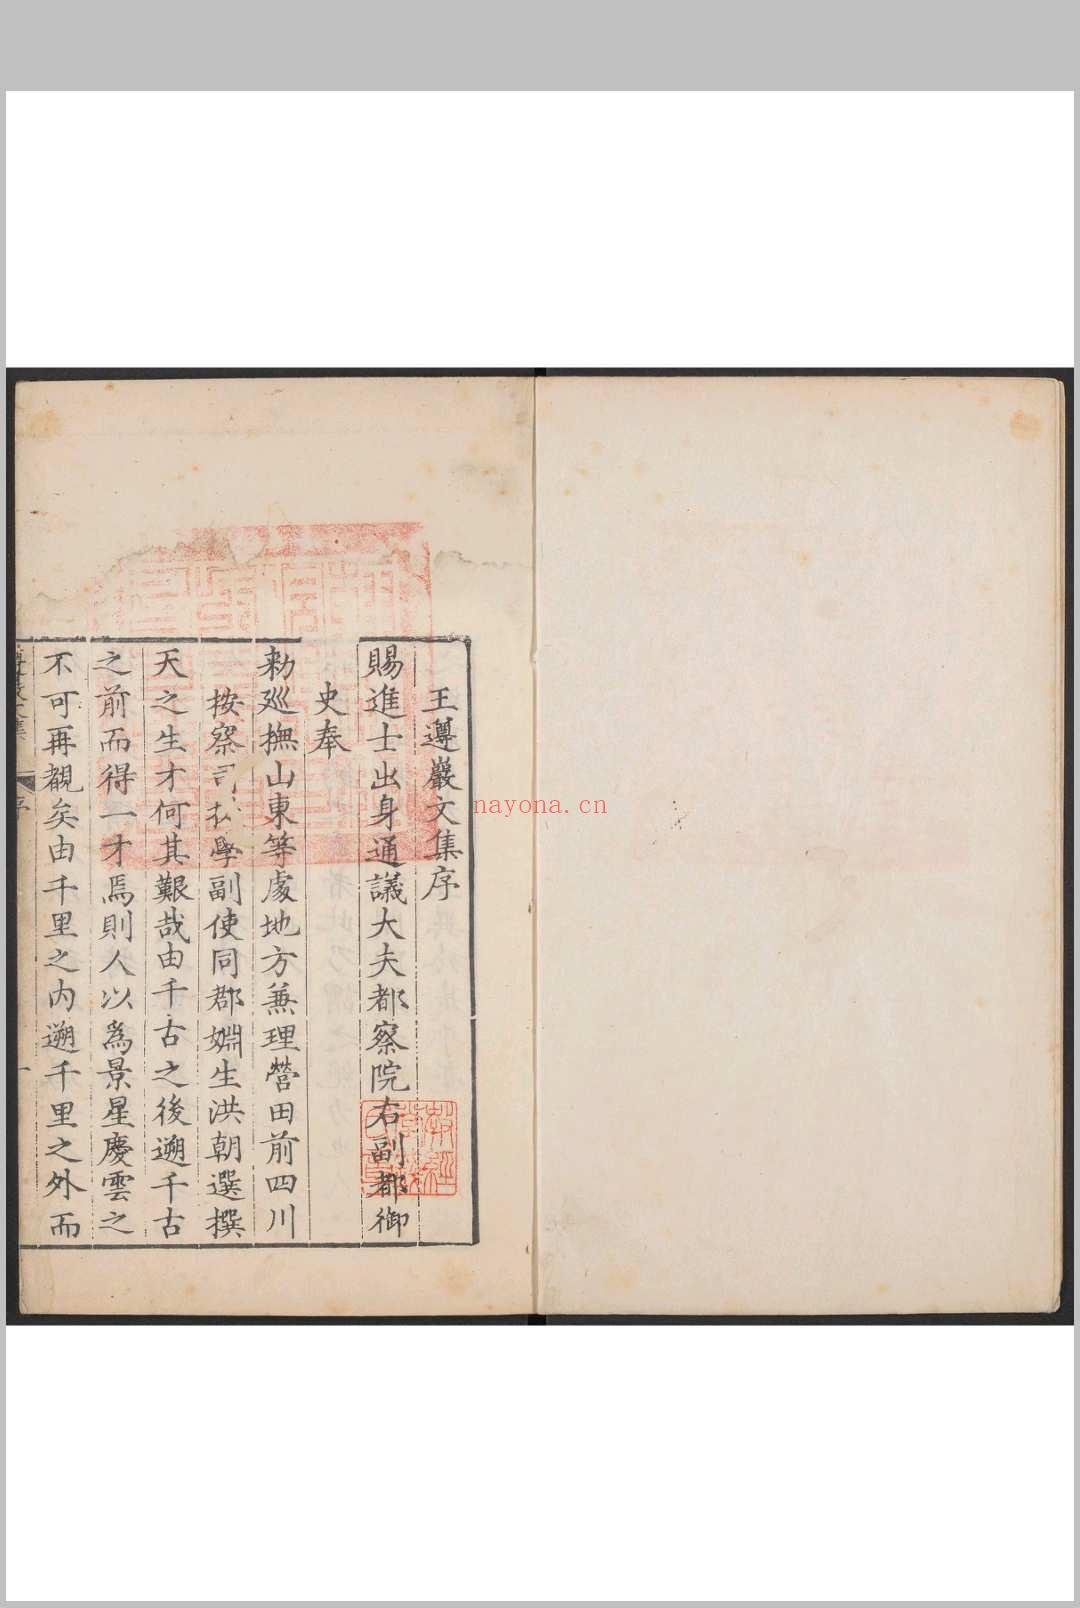 王遵巖文集序
賜進士出身通議大夫都察院右副都御
史奉
勅廵撫山東等處地方兼理營田前四川
按察司 學副使同郡 生洪朝選撰
天之生才何其艱哉由千古之後遡千古
之前而得一才焉則人以為景星慶雲之
不可再覩矣由千里之内遡千里之外而
序
一
nayona.cn